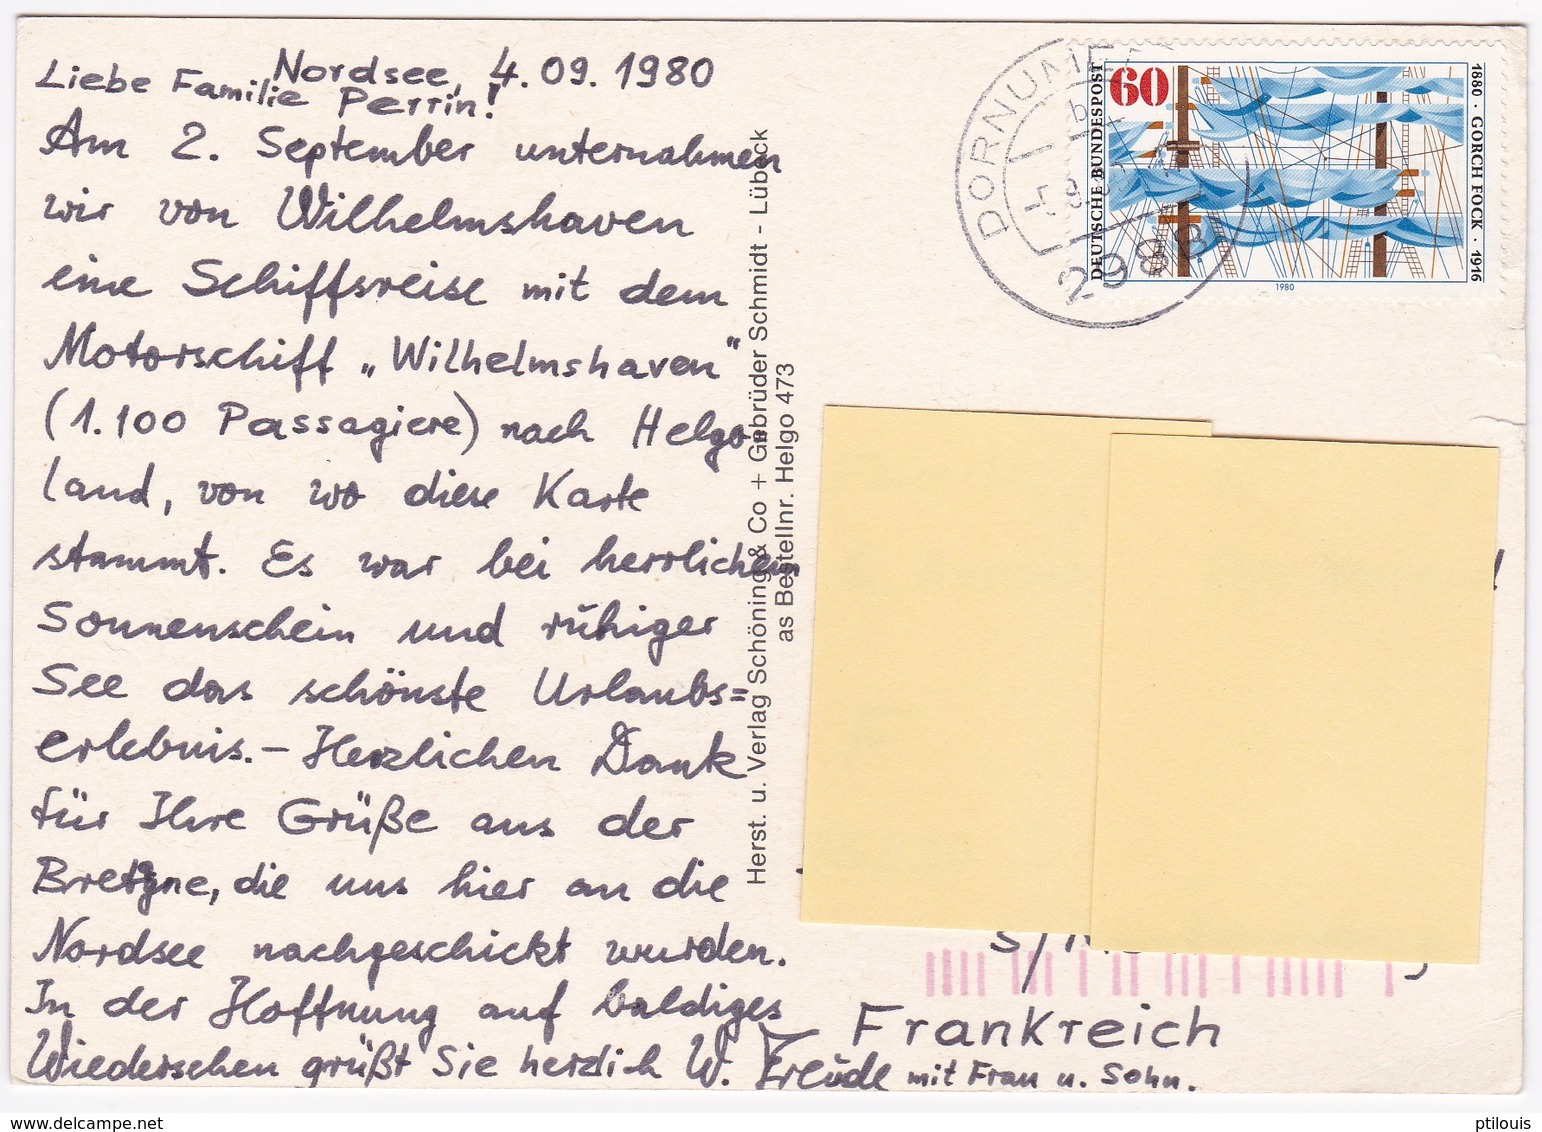 Nordsee, 4.09.1980
Liebe Familie Perrin!
Am 2. September unternahmen
wir von Wilhelmshaven
eine Schiffsreise mit dem
Motorschiff „Wilhelmshaven"
(1.100 Passagiere) nach Helgo-
land, von wo diese Karte
stammt. Es war bei herrlichem
Sonnenschein und ruhiger
See das schönste Urlaubs=
erlebnis. – Herzlichen Dank
für Ihre Grüße aus der
Bretagne, die uns hier an die
Nordsee nachgeschickt wurden.
In der Hoffnung auf baldiges
Wiedersehen grüßt Sie herzlich W. mit Frau u. Sohn.
Herst. u. Verlag Schöning & Co + Gebrüder Schmidt - Lübeck
as Bestellnr. Helgo 473
2988
DEUTSCHE BUNDESPOST
60
1880 · GORCH FOCK · 1916
1980
Frankreich
delcampe.net
ptilouis